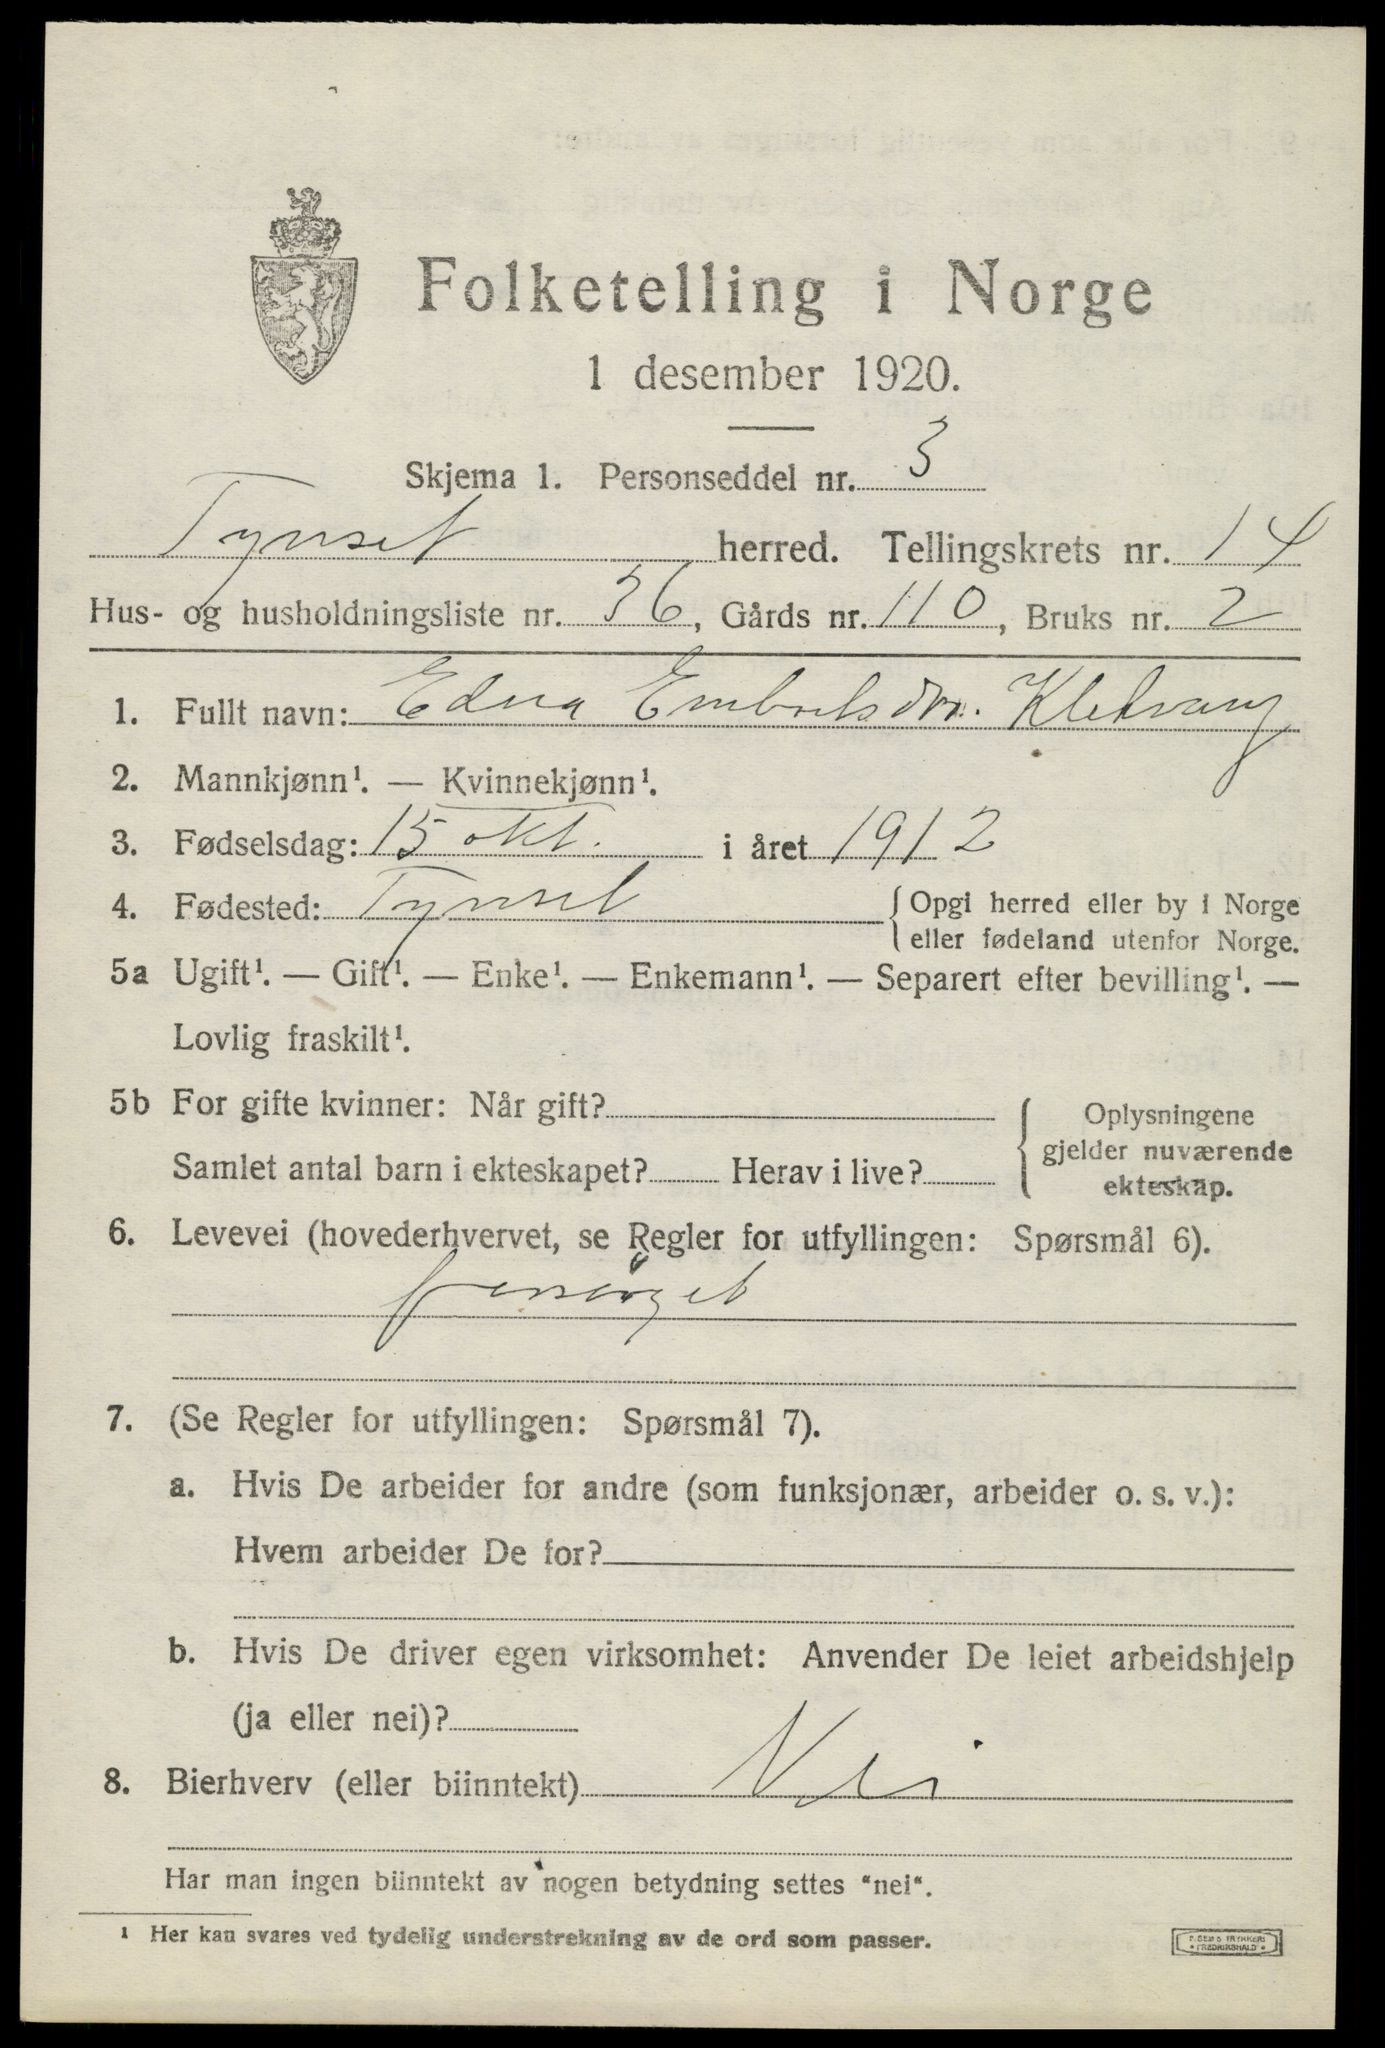 Folketelling i Norge
1 desember 1920.
Skjema 1. Personseddel nr. 3
Tynset herred. Tellingskrets nr. 14
Hus- og husholdningsliste nr. 36, Gårds nr. 110, Bruks nr. 2
1. Fullt navn: Edna Embretsdtr. Kletvang
2. Mannkjønn¹. — Kvinnekjønn¹.
3. Fødselsdag: 15 okt. i året 1912
4. Fødested: Tynset {Opgi herred eller by i Norge
eller fødeland utenfor Norge.
5a Ugift¹. — Gift¹. — Enke¹. — Enkemann¹. — Separert efter bevilling¹. —
Lovlig fraskilt¹.
5b For gifte kvinner: Når gift?
Samlet antal barn i ekteskapet? Herav i live?
{Oplysningene
gjelder nuværende
ekteskap.
6. Levevei (hovederhvervet, se Regler for utfyllingen: Spørsmål 6).
forsörget
7. (Se Regler for utfyllingen: Spørsmål 7).
a. Hvis De arbeider for andre (som funksjonær, arbeider o. s. v.):
Hvem arbeider De for?
b. Hvis De driver egen virksomhet: Anvender De leiet arbeidshjelp
(ja eller nei)?
8. Bierhverv (eller biinntekt) Nei
Har man ingen biinntekt av nogen betydning settes "nei".
¹ Her kan svares ved tydelig understrekning av de ord som passer.